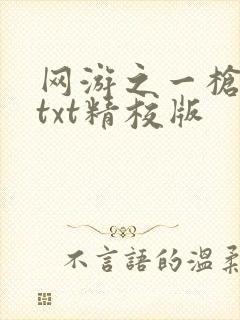 网游之一槍
txt精校版
不言語的温柔